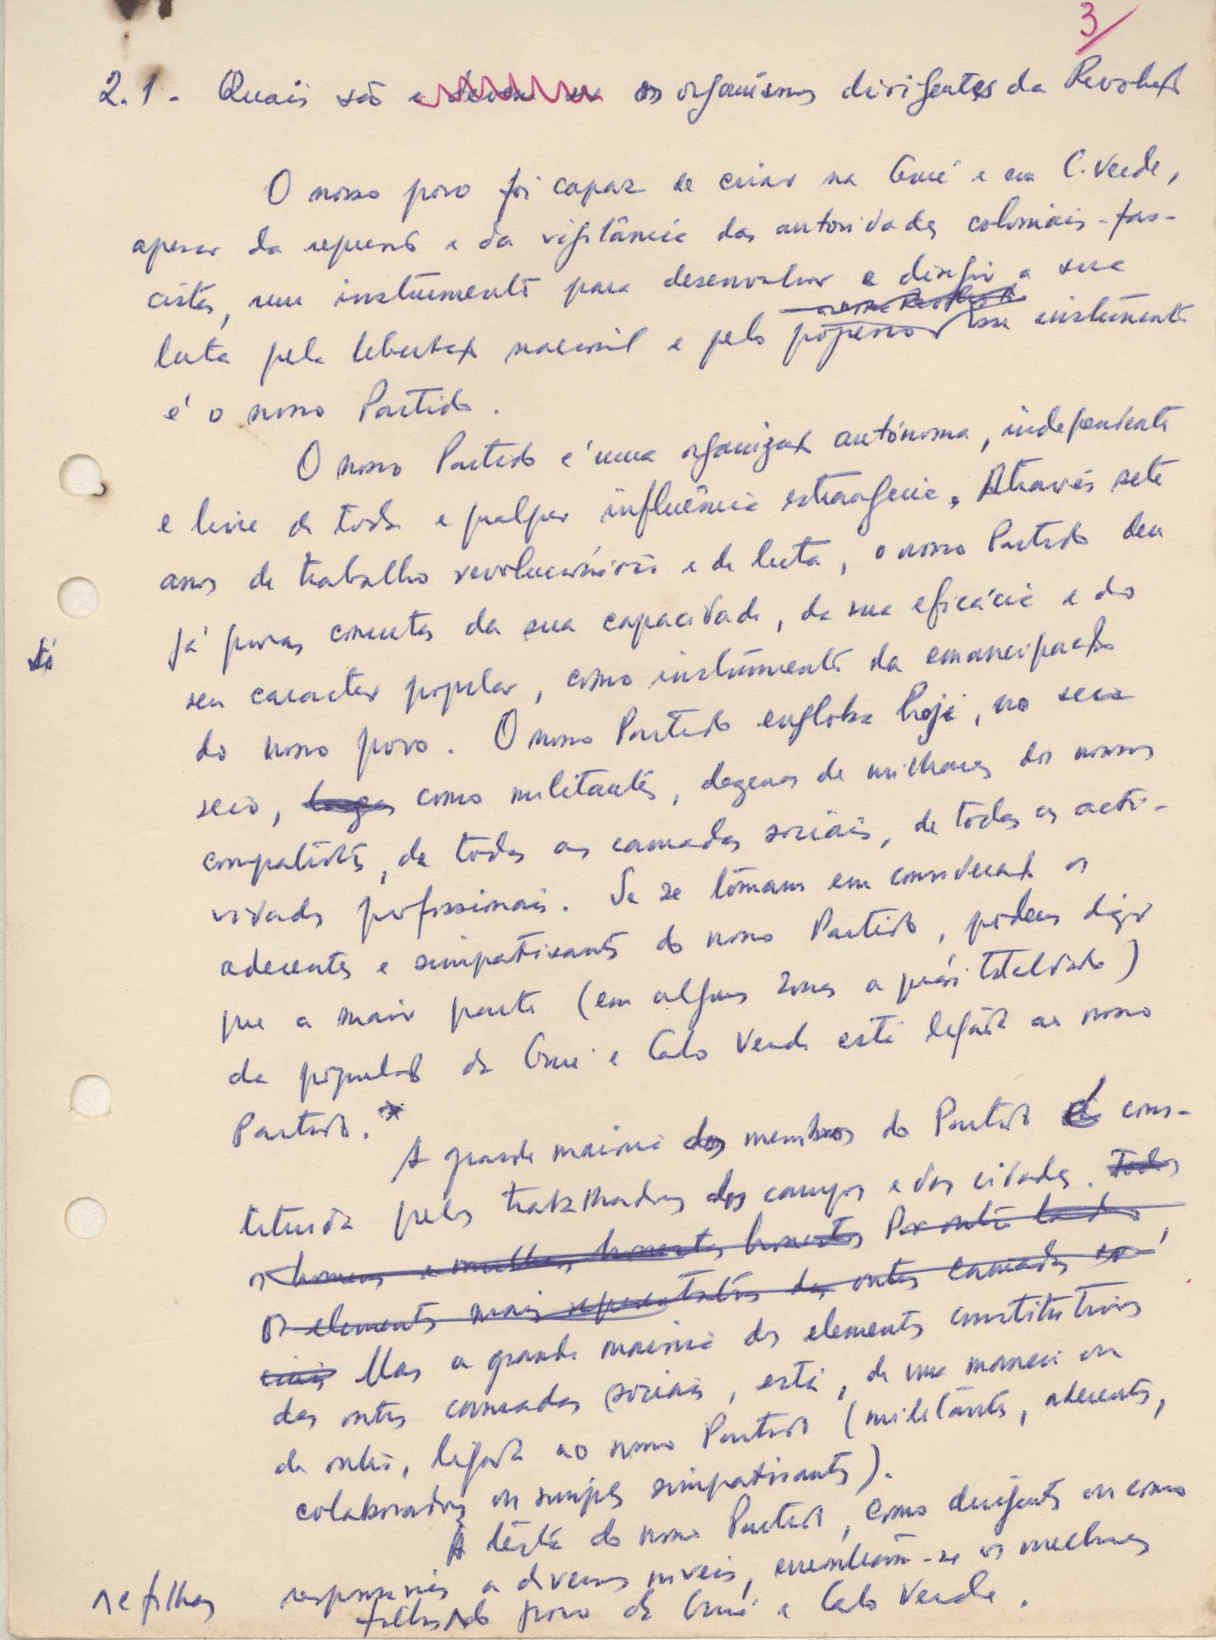 3/
2.1 - Quais são os organismos dirigentes da Revolução
O nosso povo foi capaz de criar na Guiné e em C. Verde,
apesar da repressão e da vigilância das autoridades coloniais-fas-
cistas, um instrumento para desenvolver e dirigir a sua
luta pela libertação nacional e pelo progresso esse instrumento
é o nosso Partido.
O nosso Partido é uma organização autónoma, independente
e livre de toda e qualquer influência estrangeira. Através sete
anos de trabalho revolucionário e de luta, o nosso Partido deu
já provas concretas da sua capacidade, da sua eficácia e do
seu caracter popular, como instrumento da emancipação
do nosso povo. O nosso Partido engloba hoje, no seu
seio, como militantes, dezenas de milhares dos nossos
compatriotas, de todas as camadas sociais, de todas as acti-
vidades profissionais. Se se tomam em consideração os
aderentes e simpatizantes do nosso Partido, podemos dizer
que a maior parte (em algumas zonas a quási totalidade)
da população da Guiné e Cabo Verde está ligada ao nosso
Partido.*
A grande maioria dos membros do Partido é cons-
tituida pelos trabalhadores dos campos e das cidades. Todos
os homens e mulheres honestos Por outro lado,
os elementos mais representativos das outras camadas so-
ciais Mas a grande maioria dos elementos constitutivos
das outras camadas sociais, está, de uma maneira ou
de outra, ligada ao nosso Partido (militantes, aderentes,
colaboradores ou simples simpatizantes).
À testa do nosso Partido, como dirigentes ou como
responsáveis a diversos níveis, encontram-se os melhores
filhos do povo da Guiné e Cabo Verde.
e filhas